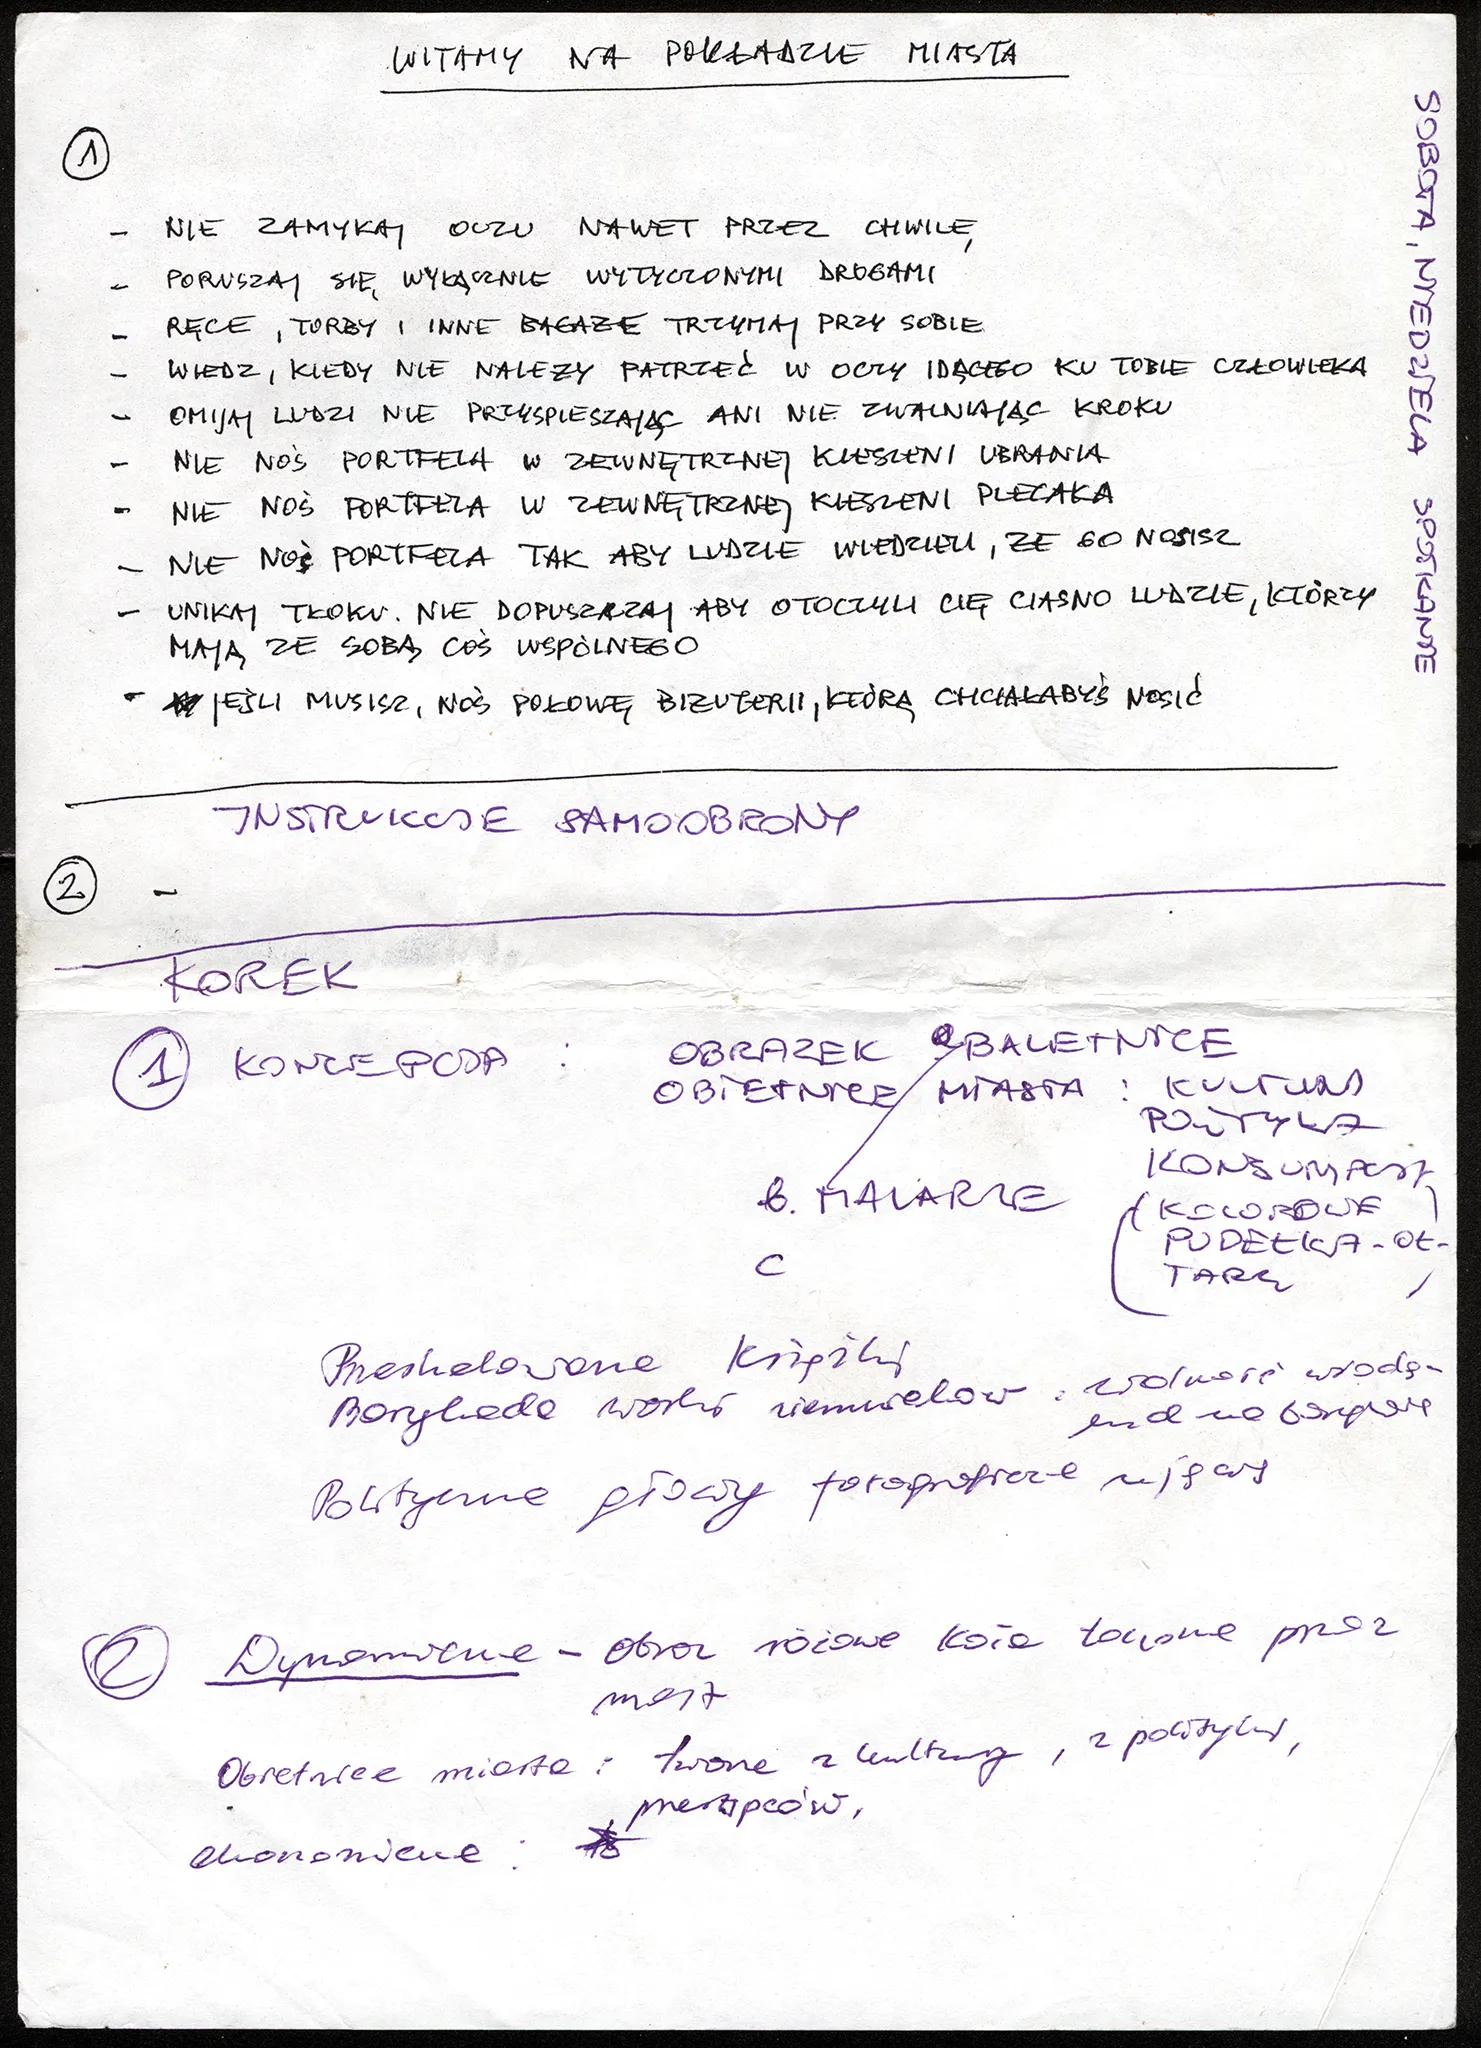 WITAMY NA POKŁADZIE MIASTA
SOBOTA, NIEDZIELA SPOTKANIE
1
- NIE ZAMYKAJ OCZU NAWET PRZEZ CHWILĘ
- PORUSZAJ SIĘ WYŁĄCZNIE WYTYCZONYMI DROGAMI
- RĘCE, TORBY I INNE BAGAŻE TRZYMAJ PRZY SOBIE
- WIEDZ, KIEDY NIE NALEŻY PATRZEĆ W OCZY IDĄCEGO KU TOBIE CZŁOWIEKA
- OMIJAJ LUDZI NIE PRZYSPIESZAJĄC ANI NIE ZWALNIAJĄC KROKU
- NIE NOŚ PORTFELA W ZEWNĘTRZNEJ KIESZENI UBRANIA
- NIE NOŚ PORTFELA W ZEWNĘTRZNEJ KIESZENI PLECAKA
- NIE NOŚ PORTFELA TAK ABY LUDZIE WIEDZIELI, ŻE GO NOSISZ
- UNIKAJ TŁOKU. NIE DOPUSZCZAJ ABY OTOCZYLI CIĘ CIASNO LUDZIE, KTÓRZY
MAJĄ ZE SOBĄ COŚ WSPÓLNEGO
- JEŚLI MUSISZ, NOŚ POŁOWĘ BIŻUTERII, KTÓRĄ CHCIAŁABYŚ NOSIĆ
INSTRUKCJE SAMOOBRONY
2 -
KOREK
1 KONCEPCJA : OBRAZEK BALETNICE
OBIETNICE MIASTA : KULTURA
POLITYKA
KONSUMPCJA
B. MALARZE (KOLOROWE
PUDEŁKA-OŁ-
C TARZ)
książki
Barykada worki ziemniaków : wolność
na barykady
Polityczne głowy fotograficzne
2 Dynamiczne - Obraz różowe koła toczone przez
most
Obietnice miasta : z kultury, z polityki,
przestępców,
ekonomiczne :